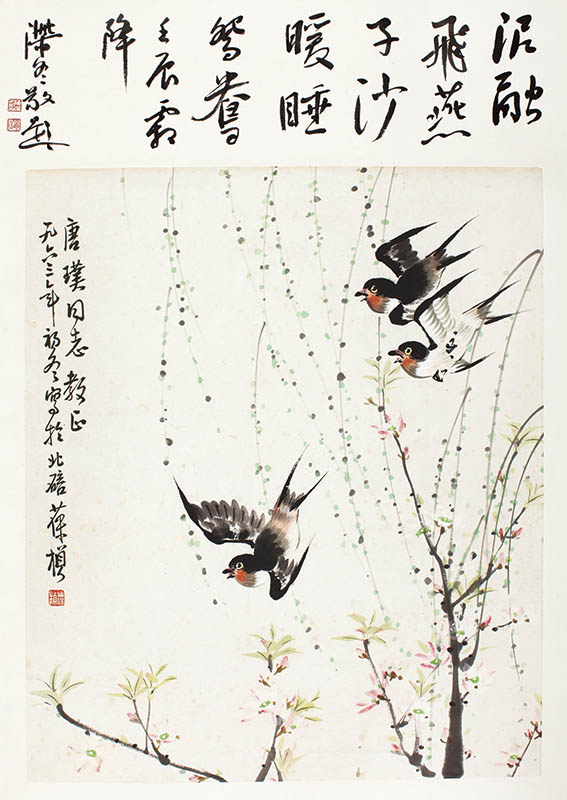 泥融
飛燕
子沙
暖睡
鴛鴦
壬辰霜
降
冬敬題
唐璞同志教正
一九六三年初冬寫於北碚葆楨